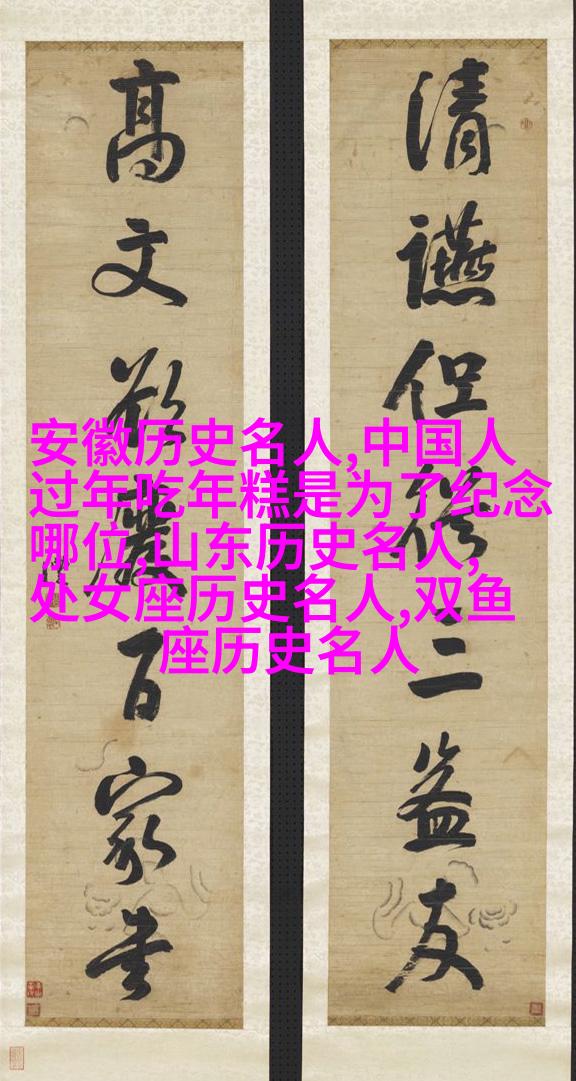 清讌但三益友
高文百家書
安徽历史名人,中国人
过年吃年糕是为了纪念
哪位,山东历史名人,
处女座历史名人,双鱼
座历史名人